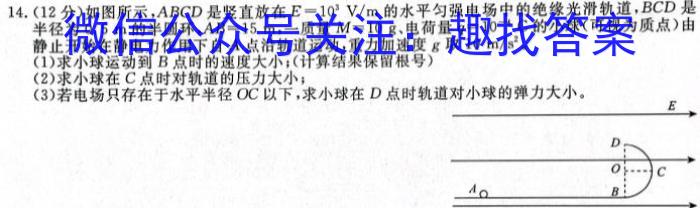 14.(12分)如图所示,ABCD是竖直放在E=10³ V/m的水平匀强电场中的绝缘光滑轨道,BCD是
微信公众号关注:趣找答案
(1)求小球运动到B点时的速度大小;(计算结果保留根号)
(2)求小球在C点时对轨道的压力大小;
(3)若电场只存在于水平半径OC以下,求小球在D点时轨道对小球的弹力大小。
E
D
O C
A B